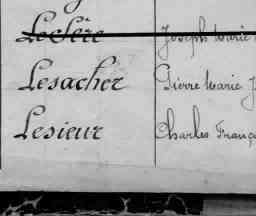 Leclère Joseph Marie
Lesacher Pierre Marie J
Lesieur Charles Franç